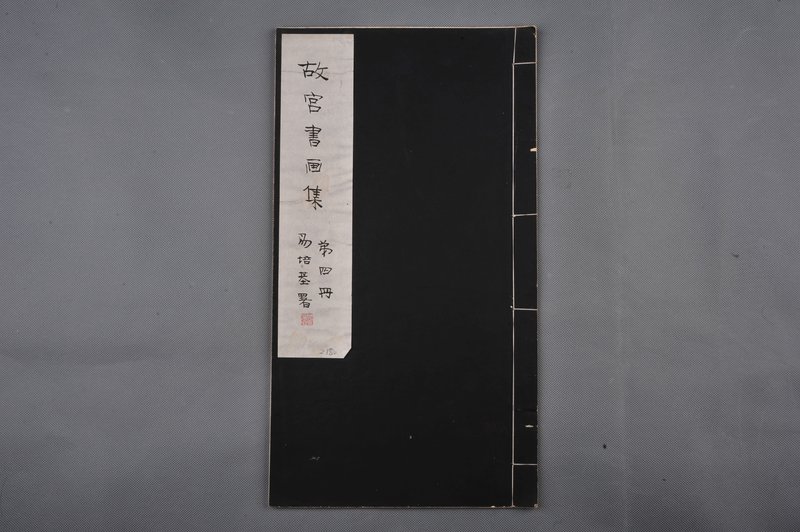 故宮書画集
第四冊
易培基署